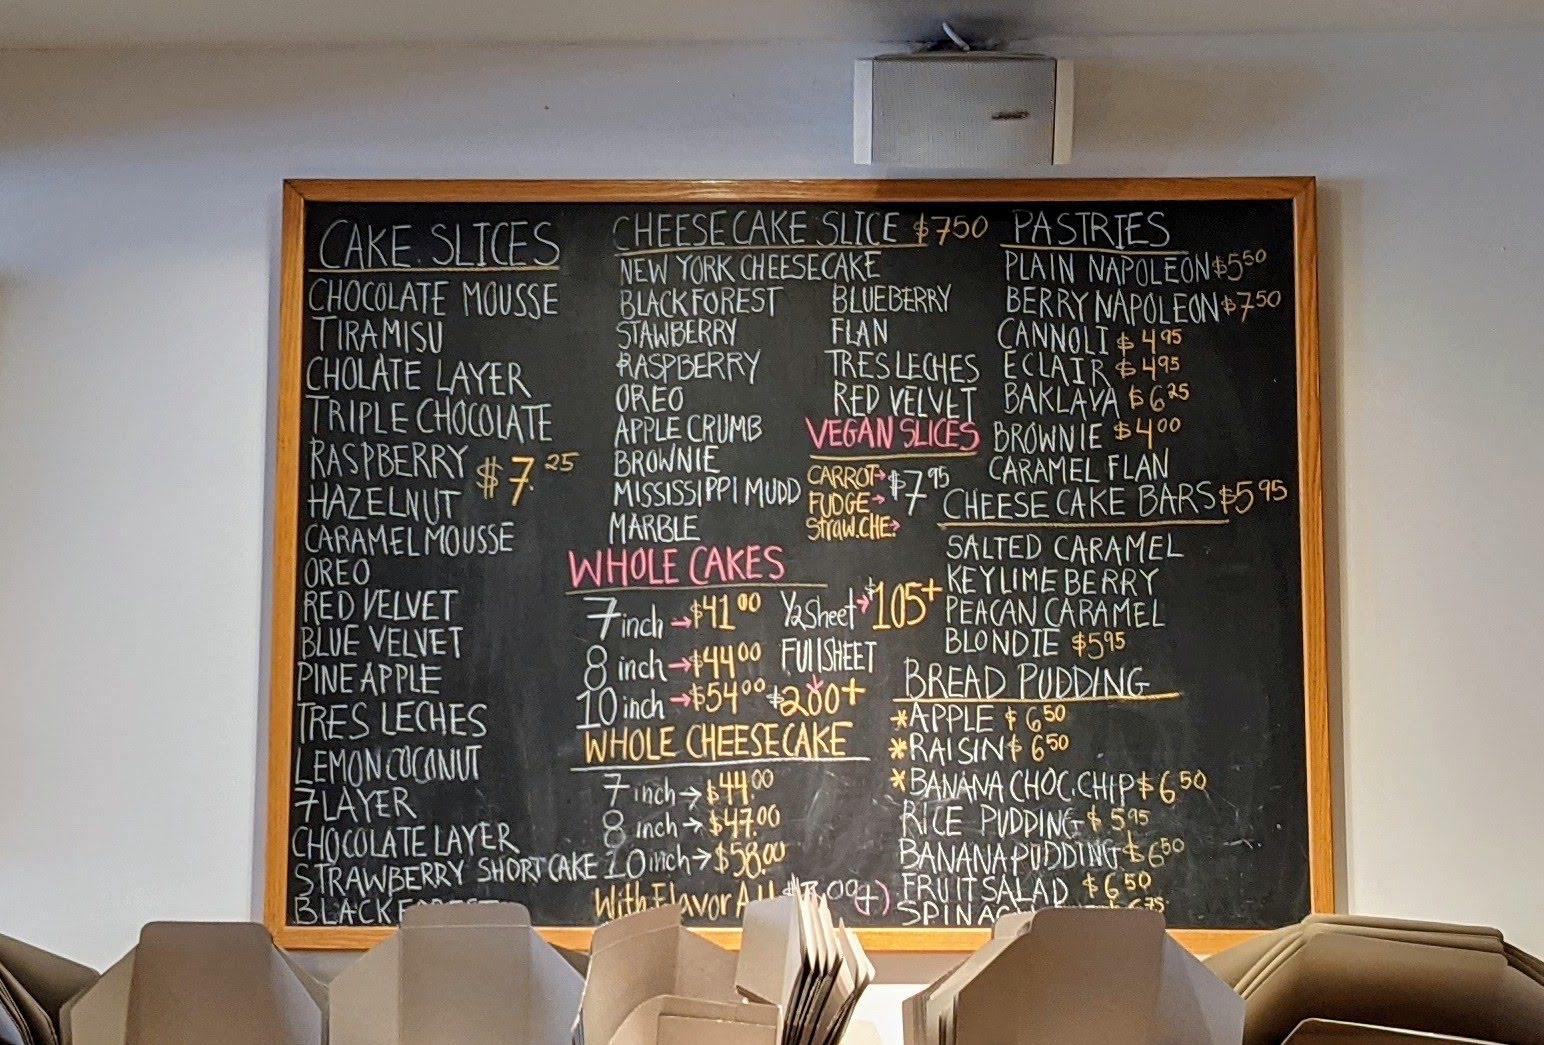 CAKE SLICES
CHOCOLATE MOUSSE
TIRAMISU
CHOLATE LAYER
TRIPLE CHOCOLATE
RASPBERRY $7.25
HAZELNUT
CARAMEL MOUSSE
OREO
RED VELVET
BLUE VELVET
PINE APPLE
TRES LECHES
LEMON COCONUT
7 LAYER
CHOCOLATE LAYER
STRAWBERRY SHORTCAKE
BLACK
CHEESE CAKE SLICE $7.50
NEW YORK CHEESE CAKE
BLACKFOREST
STAWBERRY
RASPBERRY
OREO
APPLE CRUMB
BROWNIE
MISSISSIPPI MUDD
MARBLE
BLUEBERRY
FLAN
TRES LECHES
RED VELVET
VEGAN SLICES
CARROT→ $7.95
FUDGE→
STRAW.CHE→
WHOLE CAKES
7 inch→$41.00
8 inch→$44.00
10 inch→$54.00
1/2 Sheet→$105+
FUllSHEET
$200+
WHOLE CHEESE CAKE
7 inch→$44.00
8 inch→$47.00
10 inch→$58.00
With Flavor
PASTRIES
PLAIN NAPOLEON $5.50
BERRY NAPOLEON $7.50
CANNOLI $4.95
ECLAIR $4.95
BAKLAVA $6.25
BROWNIE $4.00
CARAMEL FLAN
CHEESE CAKE BARS $5.95
SALTED CARAMEL
KEYLIME BERRY
PEACAN CARAMEL
BLONDIE $5.95
BREAD PUDDING
*APPLE $6.50
*RAISIN $6.50
*BANANA CHOC.CHIP $6.50
RICE PUDDING $5.95
BANANA PUDDING $6.50
FRUIT SALAD $6.50